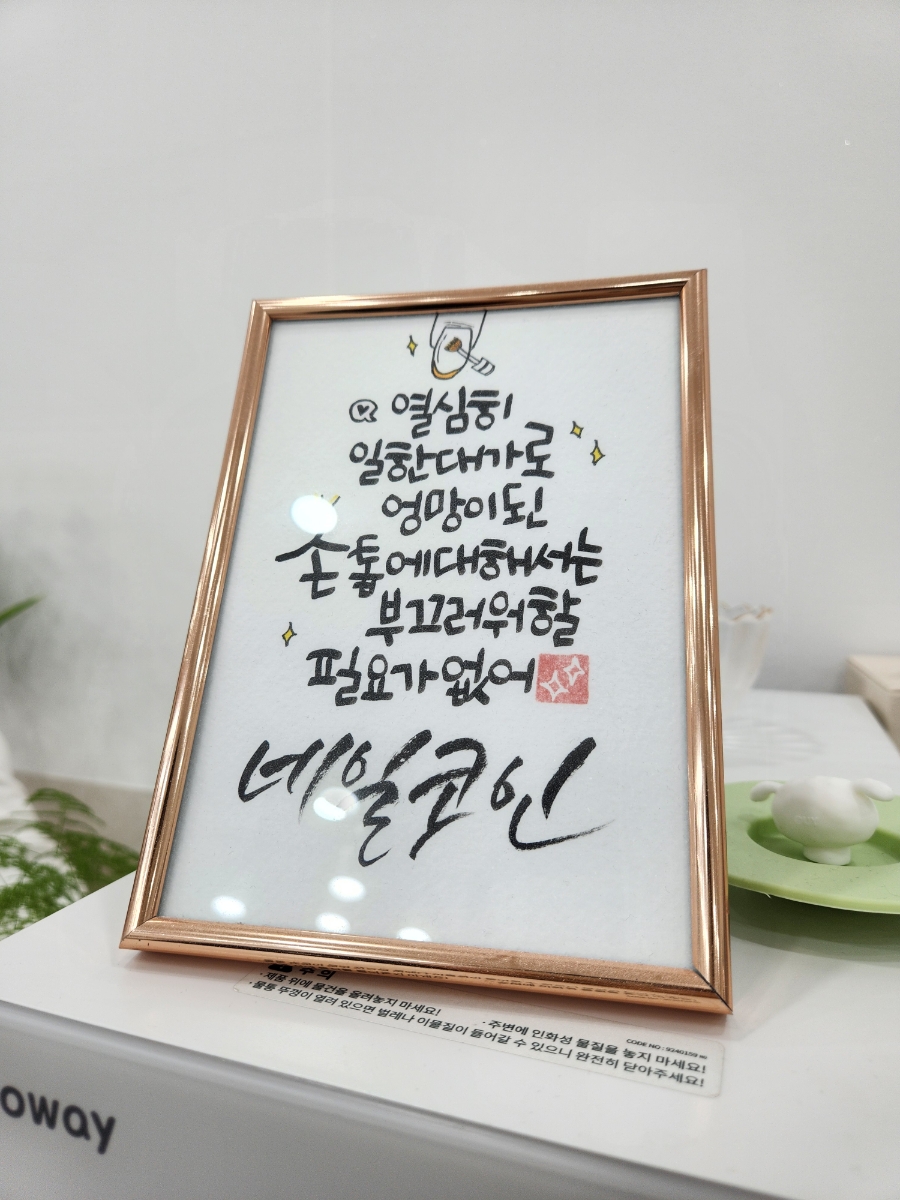 열심히
일한대가로
엉망이된
손톱에대해서는
부끄러워할
필요가없어
네일코인
주의
· 제품 위에 물건을 올려놓지 마세요!
· 물통 뚜껑이 열려 있으면 벌레나 이물질이 들어갈 수 있으니 완전히 닫아주세요!
· 주변에 인화성 물질을 놓지 마세요!
CODE NO : 9240159
oway